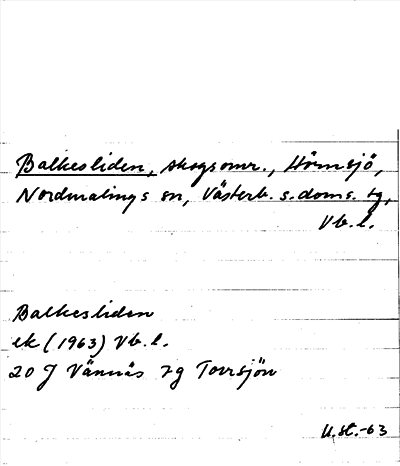 Balkesliden, skogsomr., Hörnsjö,
Nordmalings sn, Västerb. s. doms. tg,
Vb. l.
Balkesliden
ek (1963) Vb. l.
20 J Vännäs 7g Torrsjön
U.st.-63